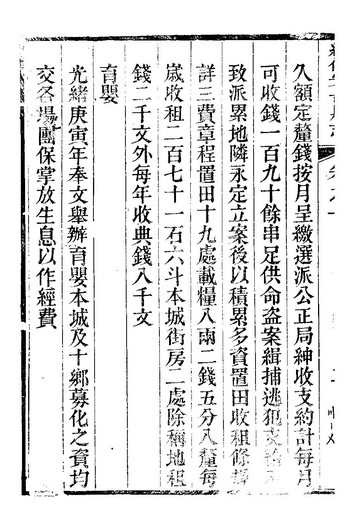 久額定釐錢按月呈繳選派公正局紳收支約計每月
可收錢一百九十餘串足供命盜案緝捕逃犯支給
致派累地隣永定立案後以積累多資置田收租條
詳三費章程置田十九處載糧八兩二錢五分八釐每
歲收租二百七十一石六斗本城街房二處除稱地租
錢二千文外每年收典錢入千文
育嬰
光緒庚寅年奉文舉辦育嬰本城及十鄉募化之資均
交各場團保掌放生息以作經費